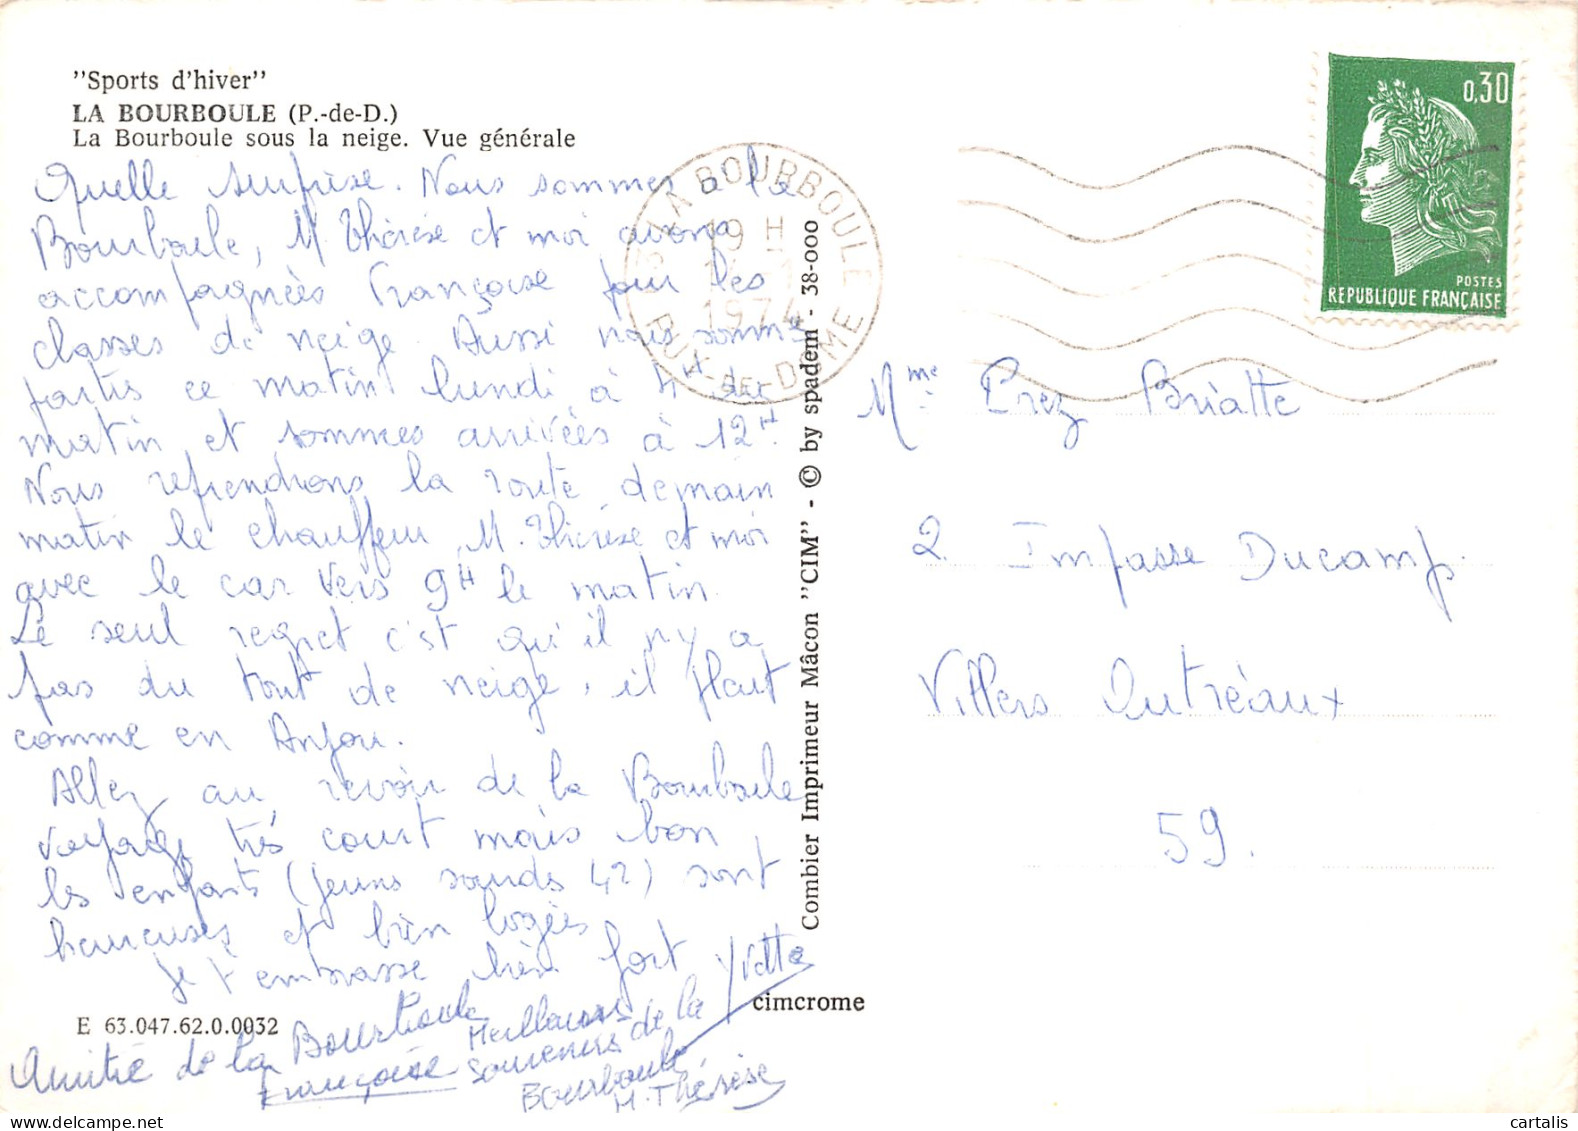 "Sports d'hiver"
LA BOURBOULE (P.-de-D.)
La Bourboule sous la neige. Vue générale
Quelle surprise. Nous sommes a la
Bourboule, M. Thérèse et moi avons
accompagnées Françoise pour les
classes de neige. Aussi nous somme
partis ce matin lundi à 4H du
matin et sommes arrivées à 12H.
Nous reprendrons la route demain
matin le chauffeur, M. Thérèse et moi
avec le car vers 9H le matin.
Le seul regret c'est qu'il n'y a
pas du tout de neige, il pleut
comme en Anjou.
Allez au revoir de la Bourboule
voyage très court mais bon
les enfants (jeuns sourds 42) sont
heureuses et bien logées
Je t'embrasse bien fort Yvette
E 63.047.62.0.0032
Amitié de la Bourboule
Françoise
Meilleurs
souvenirs de la
Bourboule
M. Thérèse
Combier Imprimeur Mâcon "CIM" - © by spadem - 38-000
cimcrome
LA BOURBOULE
19 H
1974
PUY-DE-DOME
0,30
POSTES
REPUBLIQUE FRANÇAISE
Mme Prez Briatte
2 Impasse Ducamp.
Villers Outréaux
59.
cartalis